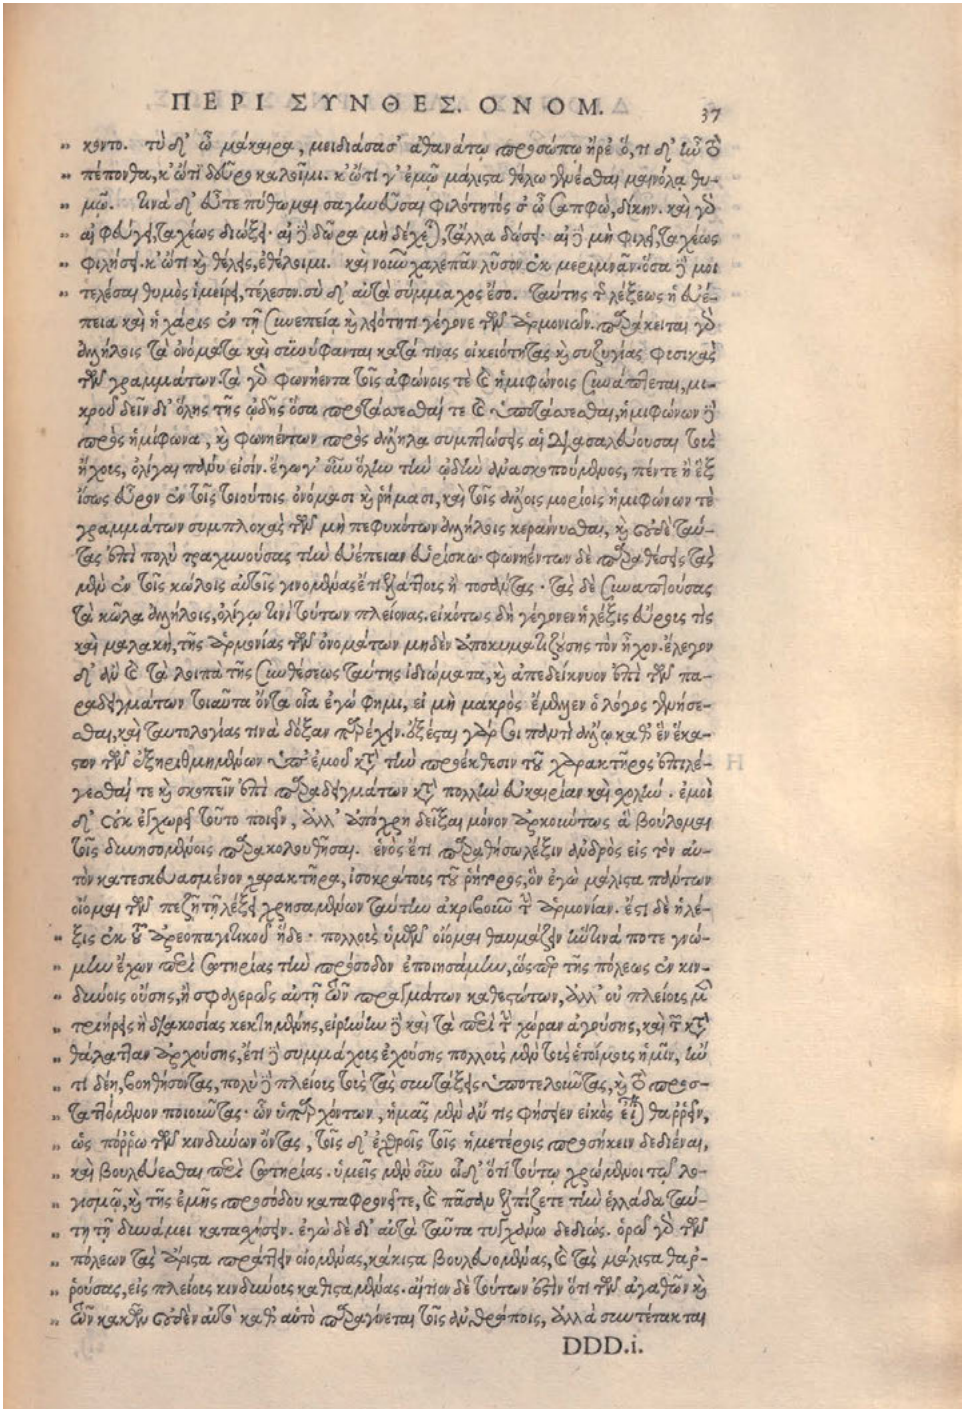 ΠΕΡΙ ΣΥΝΘΕΣ. ΟΝΟΜ. 37
„ κοντο. τὺ δ' ὦ μάκαιρα, μειδιάσασ' ἀθανάτῳ προσώπῳ ἤρε ὅ,τι δ' ἰὼ τὸ
„ πέπονθα, κ' ὥτι δεῦρο καλοῖμι. κ' ὥτι γ' ἐμῷ μάλιστα θέλω γενέσθαι μαινόλᾳ θυ-
„ μῷ. τινὰ δ' εὖτε πύθωμαι σαγίωεῦσαι φιλότητός σ' ὦ Σαπφὼ, δίκην. καὶ γὸ
„ αἰ φεύγει, ταχέως διώξει· αἰ δὲ δῶρα μὴ δέχεται, τἄλλα δώσει· αἰ δὲ μὴ φιλεῖ, ταχέως
„ φιλήσει. κ' ὥτι καὶ θέλεις, ἐθέλοιμι. καὶ νοιῶ χαλεπᾶν λῦσον ἐκ μεριμνᾶν. ὅσα δέ μοι
„ τελέσαι θυμὸς ἱμείρει, τέλεσον. σὺ δ' αὐτὰ σύμμαχος ἔσο. ταύτης τῆς λέξεως ἡ εὐέ-
πεια καὶ ἡ χάρις ἐν τῇ συνεπείᾳ καὶ λειότητι γέγονε τῶν ἁρμονιῶν. παράκειται γὰρ
ἀλλήλοις τὰ ὀνόματα καὶ συνύφανται κατά τινας οἰκειότητας καὶ συζυγίας φυσικὰς
τῶν γραμμάτων. τὰ γὰρ φωνήεντα τοῖς ἀφώνοις τὲ καὶ ἡμιφώνοις συνάπτεται, μι-
κροῦ δεῖν δι' ὅλης τῆς ᾠδῆς ὅσα προτάσσεσθαί τε καὶ ὑποτάσσεσθαι, ἡμιφώνων δὲ
πρὸς ἡμίφωνα, καὶ φωνηέντων πρὸς ἄλληλα συμπτώσεις αἱ διασαλεύουσαι τοὺς
ἤχοις, ὀλίγαι πάνυ εἰσίν. ἔγωγ' οὖν ὅλην τὴν ᾠδὴν ἀνασκοπούμενος, πέντε ἢ ἓξ
ἴσως εὗρον ἐν τοῖς τοιούτοις ὀνόμασι καὶ ῥήμασι, καὶ τοῖς ἄλλοις μορίοις ἡμιφώνων τὲ
γραμμάτων συμπλοκὰς τῶν μὴ πεφυκότων ἀλλήλοις κεραίνυσθαι, καὶ οὐδὲ ταύ-
τας ἐπὶ πολὺ τραχυνούσας τὴν εὐέπειαν εὑρίσκω· φωνηέντων δὲ παραθέσεις τὰς
μὲν ἐν τοῖς κώλοις αὐτοῖς γινομένας ἔτι ἐλάττοις ἢ τοσαύτας· τὰς δὲ συναπτούσας
τὰ κῶλα ἀλλήλοις, ὀλίγῳ τινὶ τούτων πλείονας. εἰκότως δὴ γέγονεν ἡ λέξις εὔροις τὶς
καὶ μαλακὴ, τῆς ἁρμονίας τῶν ὀνομάτων μηδὲν ἀποκυματιζούσης τὸν ἦχον. ἔλεγον
δ' ἂν καὶ τὰ λοιπὰ τῆς συνθέσεως ταύτης ἰδιώματα, καὶ ἀπεδείκνυον ἐπὶ τῶν πα-
ραδειγμάτων τοιαῦτα ὄντα οἷα ἐγώ φημι, εἰ μὴ μακρὸς ἔμελλεν ὁ λόγος γενήσε-
σθαι, καὶ ταυτολογίας τινὰ δόξαν παρέχειν. ἐξέσται γάρ σοι παντὶ ἄλλῳ καθ' ἓν ἕκα-
στον τῶν ἐξηριθμημένων ὑπ' ἐμοῦ κατὰ τὴν προέκθεσιν τοῦ χαρακτῆρος ἐπιλέ-
γεσθαί τε καὶ σκοπεῖν ἐπὶ παραδειγμάτων κατὰ πολλὴν εὐκαιρίαν καὶ σχολήν. ἐμοὶ
δ' οὐκ ἐγχωρεῖ τοῦτο ποιεῖν, ἀλλ' ἀπόχρη δεῖξαι μόνον ἀρκούντως ἃ βούλομαι
τοῖς δυνησομένοις παρακολουθῆσαι. ἑνὸς ἔτι παραθήσω λέξιν ἀνδρὸς εἰς τὸν αὐ-
τὸν κατεσκευασμένον χαρακτῆρα, ἰσοκράτοις τοῦ ῥήτορος, ὃν ἐγὼ μάλιστα πάντων
οἴομαι τῶν πεζῇ τῇ λέξει χρησαμένων ταύτην ἀκριβοῦν τὴν ἁρμονίαν. ἔστι δὲ ἡ λέ-
„ ξις ἐκ τοῦ ἀρεοπαγιτικοῦ ἥδε· πολλοὶς ὑμῶν οἴομαι θαυμάζειν ἥντινά ποτε γνώ-
„ μην ἔχων περὶ σωτηρίας τὴν πρόσοδον ἐποιησάμην, ὥσπερ τῆς πόλεως ἐν κιν-
„ δύνοις οὔσης, ἢ σφαλερῶς αὐτῇ τῶν πραγμάτων καθεστώτων, ἀλλ' οὐ πλείοις μὲν
„ τριήρεις ἢ διακοσίας κεκτημένης, εἰρήνην δὲ καὶ τὰ περὶ τὴν χώραν ἀγούσης, καὶ τῶν κατὰ
„ θάλατταν ἀρχούσης, ἔτι δὲ συμμάχοις ἐχούσης πολλοὶς μὲν τοὶς ἑτοίμοις ἡμῖν, ἤν
„ τι δέῃ, βοηθήσοντας, πολὺ δὲ πλείοις τοὶς τὰς συντάξεις ὑποτελοῦντας, καὶ τὸ προσ-
„ ταττόμενον ποιοῦντας· ὧν ὑπαρχόντων, ἡμᾶς μὲν ἄν τις φήσειεν εἰκὸς εἶναι θαῤῥεῖν,
„ ὡς πόῤῥω τῶν κινδύνων ὄντας, τοῖς δ' ἐχθροῖς τοῖς ἡμετέροις προσήκειν δεδιέναι,
„ καὶ βουλεύεσθαι περὶ σωτηρίας. ὑμεῖς μὲν οὖν οἶδ' ὅτι τούτῳ χρώμενοι τῷ λο-
„ γισμῷ, καὶ τῆς ἐμῆς προσόδου καταφρονεῖτε, καὶ πᾶσαν ἐλπίζετε τὴν ἑλλάδα ταύ-
„ τῃ τῇ δυνάμει κατασχήσειν. ἐγὼ δὲ δι' αὐτὰ ταῦτα τυγχάνω δεδιώς. ὁρῶ γὰρ τῶν
„ πόλεων τὰς ἄριστα πράττειν οἰομένας, κάκιστα βουλευομένας, καὶ τὰς μάλιστα θαῤ-
„ ῥούσας, εἰς πλείοις κινδύνοις καθισταμένας. αἴτιον δὲ τούτων ἐστὶν ὅτι τῶν ἀγαθῶν καὶ
„ τῶν κακῶν οὐδὲν αὐτὸ καθ' αὑτὸ παραγίνεται τοῖς ἀνθρώποις, ἀλλὰ συντέτακται
DDD.i.